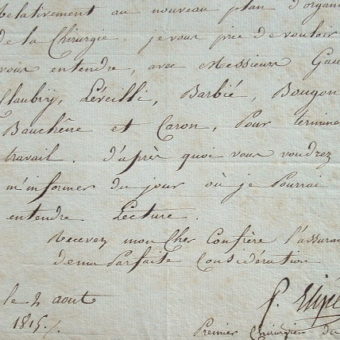 Relativement au nouveau plan d'organ
de la Chirurgie, je vous prie de vouloir
vous entendre, avec Messieurs Gau
Claubry, Léveillé, Barbié, Bougon
Bauchêne et Caron, Pour termine
travail. d'après quoi vous voudrez
m'informer du jour où je Pourrai
entendre Lecture.
Recevez mon Cher Confrère l'assuran
de ma Parfaite Considération
le 2 aout
1815./.
Premier Chirurgien du